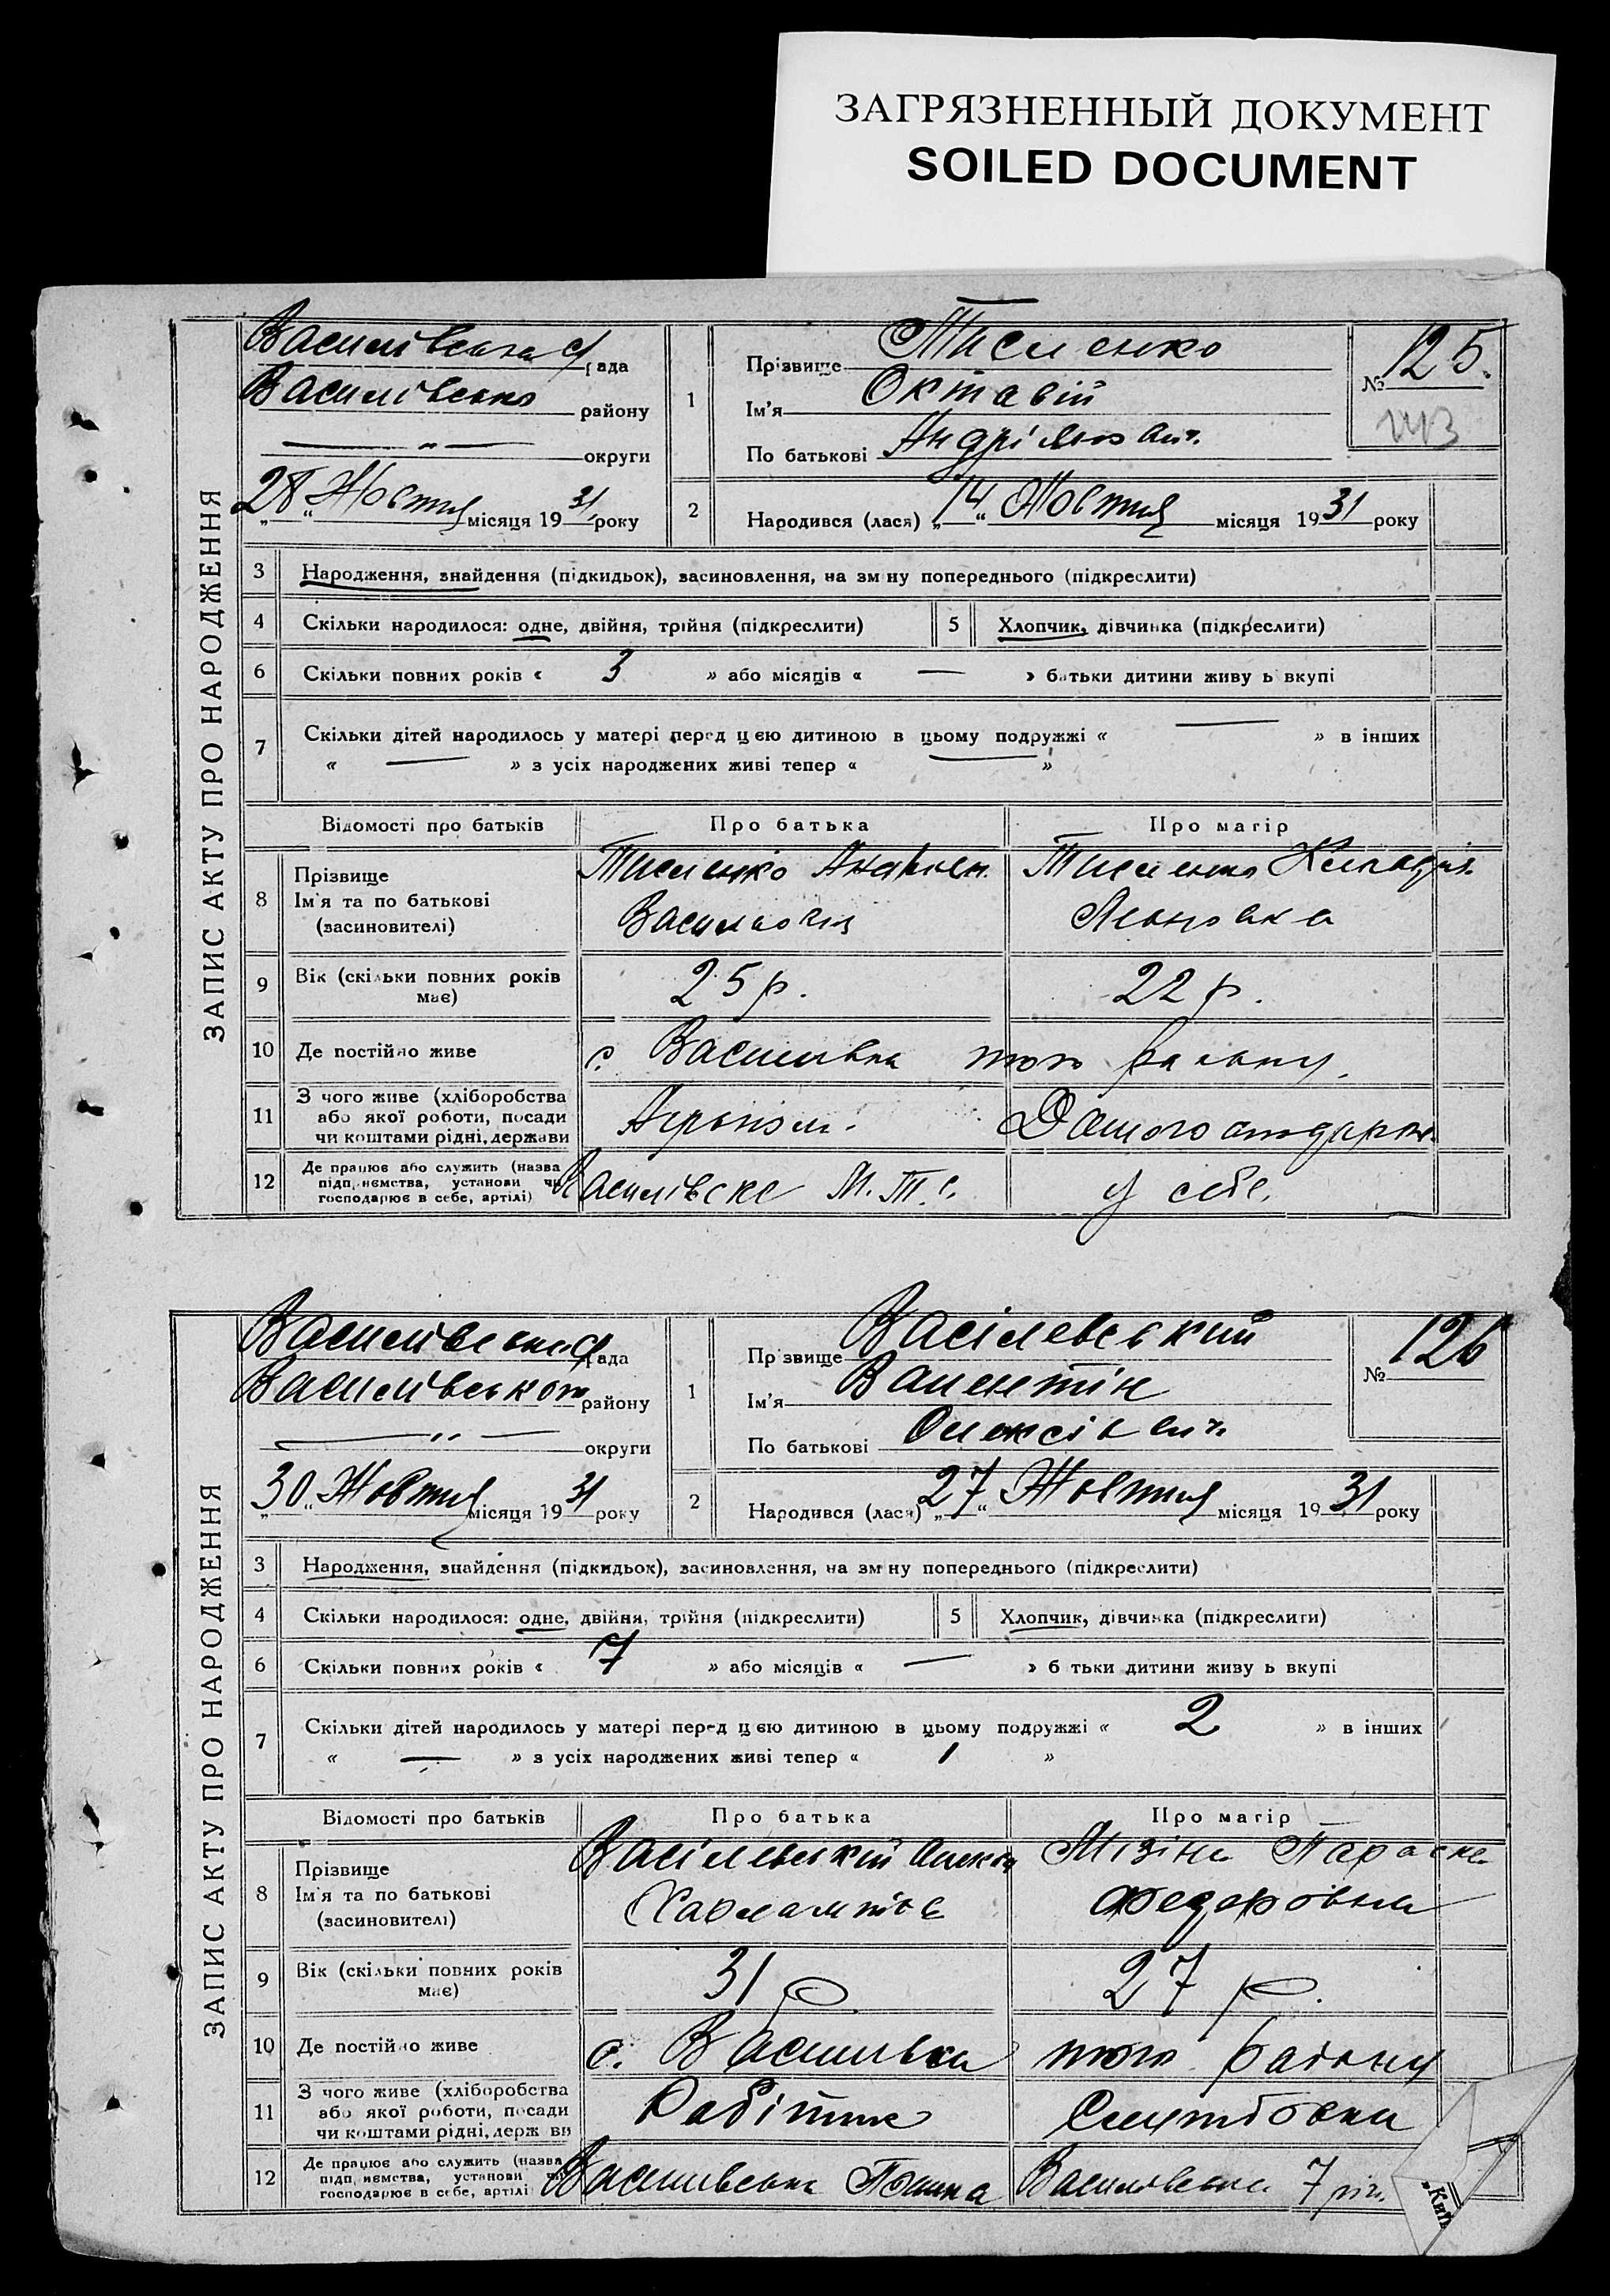 ЗАГРЯЗНЕННЫЙ ДОКУМЕНТ
SOILED DOCUMENT
ЗАПИС АКТУ ПРО НАРОДЖЕННЯ
рада
району
округи
„28“ Жовтня місяця 1931 року
1
Прізвище
Ім'я Октавій
По батькові
№ 125.
2
Народився (лася) „14“ Жовтня місяця 1931 року
3 Народження, знайдення (підкидьок), засиновлення, на зміну попереднього (підкреслити)
4 Скільки народилося: одне, двійня, трійня (підкреслити)
5 Хлопчик, дівчинка (підкреслити)
6 Скільки повних років « 3 » або місяців « — » батьки дитини живуть вкупі
7 Скільки дітей народилось у матері перед цією дитиною в цьому подружжі « — » в інших
« — » з усіх народжених живі тепер « — »
Відомості про батьків Про батька Про матір
8 Прізвище
Ім'я та по батькові
(засиновителі)
9 Вік (скільки повних років має) 25 р. 22 р.
10 Де постійно живе с. Василівка того району.
11 З чого живе (хліборобства
або якої роботи, посади
чи коштами рідні, держави
Агроном.
12 Де працює або служить (назва
підприємства, установи чи
господарює в себе, артілі)
Василівске М.Т.С. у себе.
ЗАПИС АКТУ ПРО НАРОДЖЕННЯ
рада
Василівського району
округи
„30“ Жовтня місяця 1931 року
1
Прізвище Васілевський
Ім'я Валентін
По батькові Олексієвич
№ 126
2
Народився (лася) „27“ Жовтня місяця 1931 року
3 Народження, знайдення (підкидьок), засиновлення, на зміну попереднього (підкреслити)
4 Скільки народилося: одне, двійня, трійня (підкреслити)
5 Хлопчик, дівчинка (підкреслити)
6 Скільки повних років « 7 » або місяців « — » батьки дитини живуть вкупі
7 Скільки дітей народилось у матері перед цією дитиною в цьому подружжі « 2 » в інших
« — » з усіх народжених живі тепер « 1 »
Відомості про батьків Про батька Про матір
8 Прізвище
Ім'я та по батькові
(засиновителі)
Васілевський Мізіна Параска
Федоровна
9 Вік (скільки повних років має) 31 р. 27 р.
10 Де постійно живе с. Василівка того району
11 З чого живе (хліборобства
або якої роботи, посади
чи коштами рідні, держави
Робітник Службовка
12 Де працює або служить (назва
підприємства, установи чи
господарює в себе, артілі)
Василівська Василівська 7 річ.
„Киї